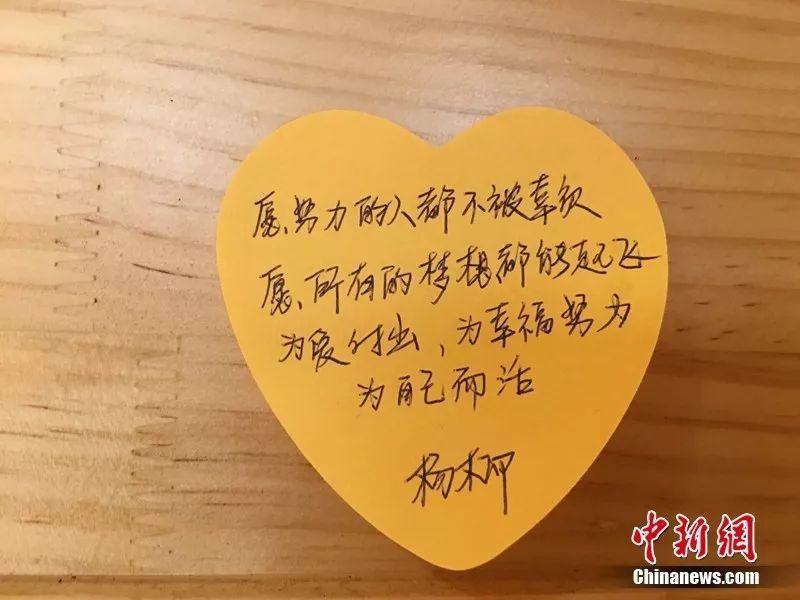 愿努力的人都不被辜负
愿所有的梦想都能起飞
为爱付出，为幸福努力
为自己而活
杨柳
中新網
Chinanews.com